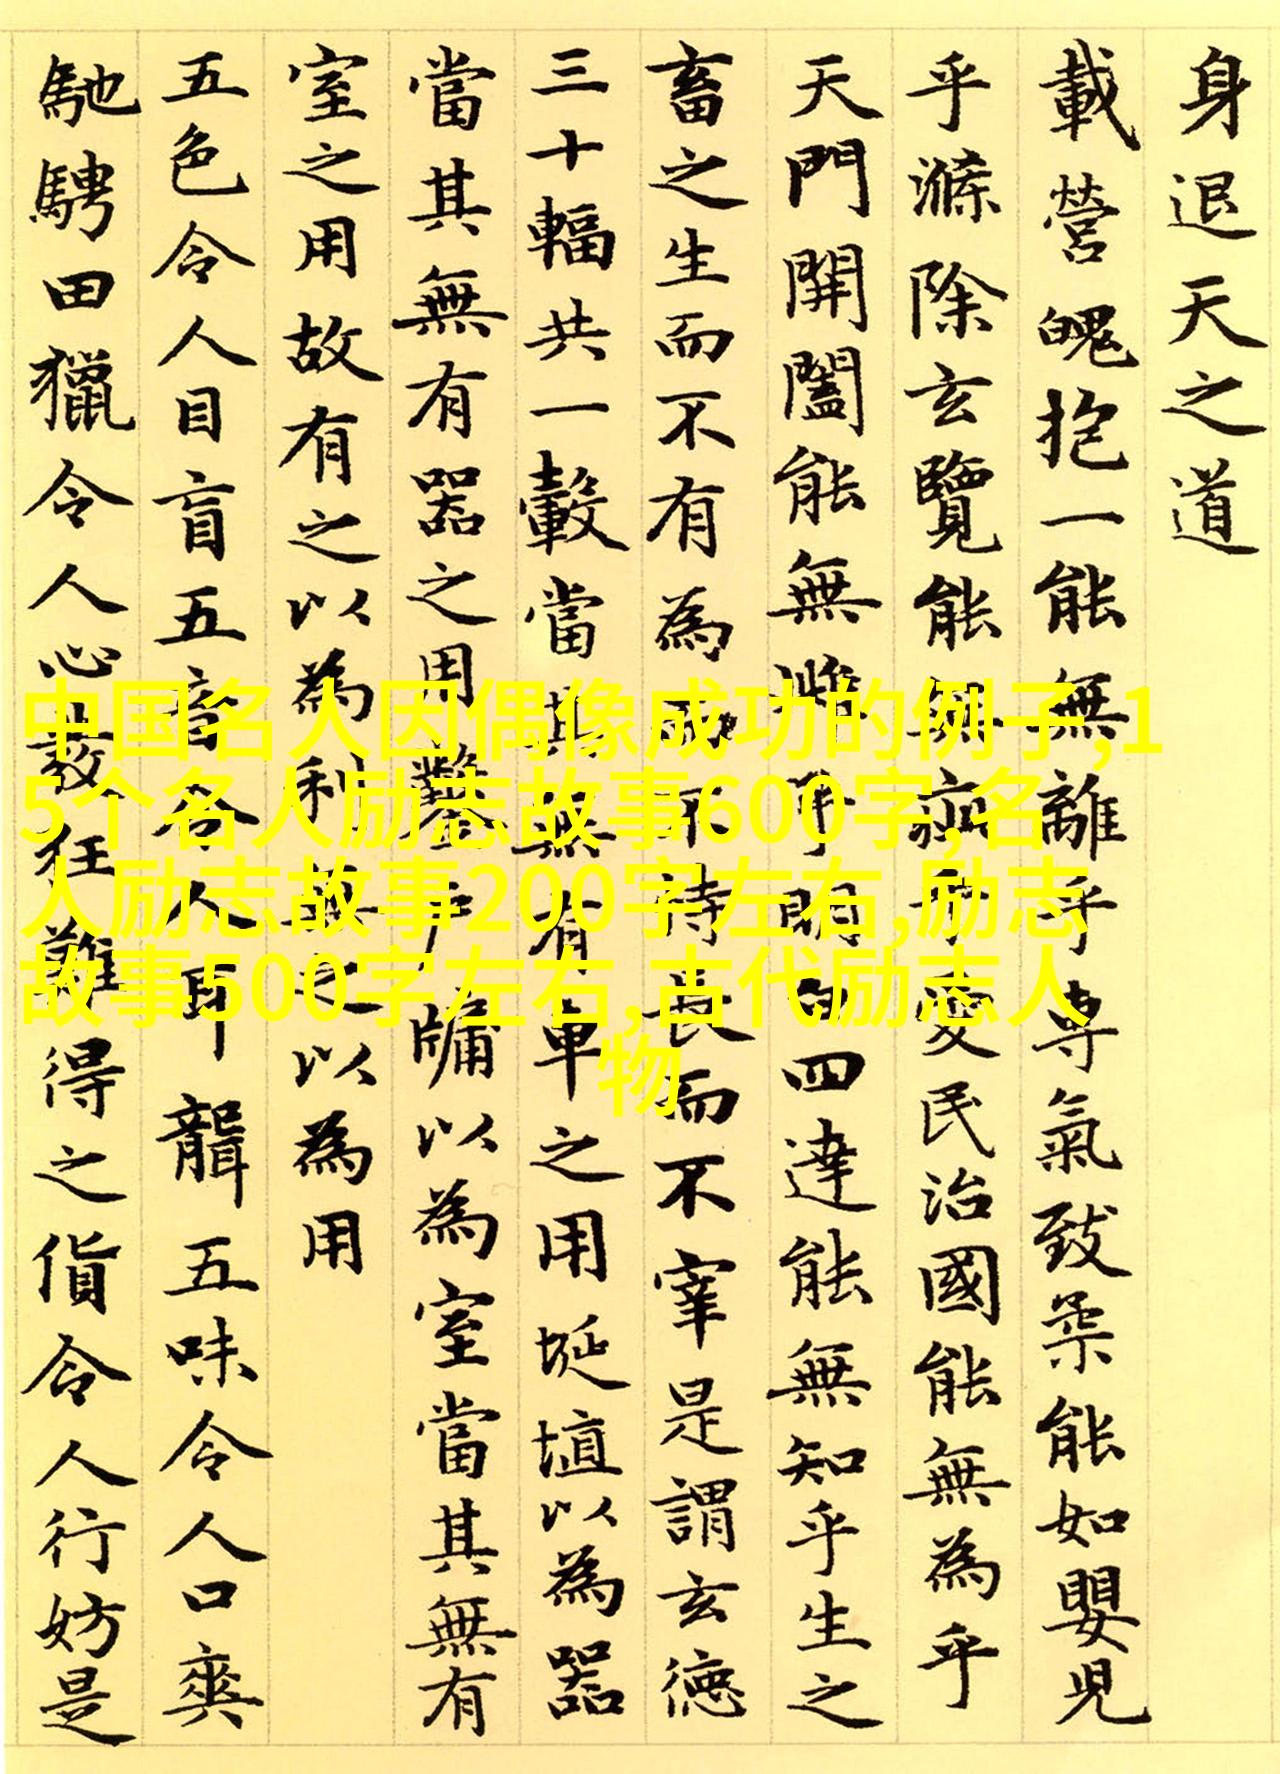 身退天之道
載營魄抱一能無離乎專氣致柔能如嬰兒
乎滌除玄覽能無疵乎愛民治國能無為乎
天門開闔能無雌乎明白四達能無知乎生之
畜之生而不有為而不恃長而不宰是謂玄德
三十輻共一轂當其無有車之用埏埴以為器
當其無有器之用鑿戶牖以為室當其無有
室之用故有之以為利無之以為用
五色令人目盲五音令人耳聾五味令人口爽
馳騁田獵令人心發狂難得之貨令人行妨是
中国名人因偶像成功的例子,1
5个名人励志故事600字,名
人励志故事200字左右,励志
故事500字左右,古代励志人
物